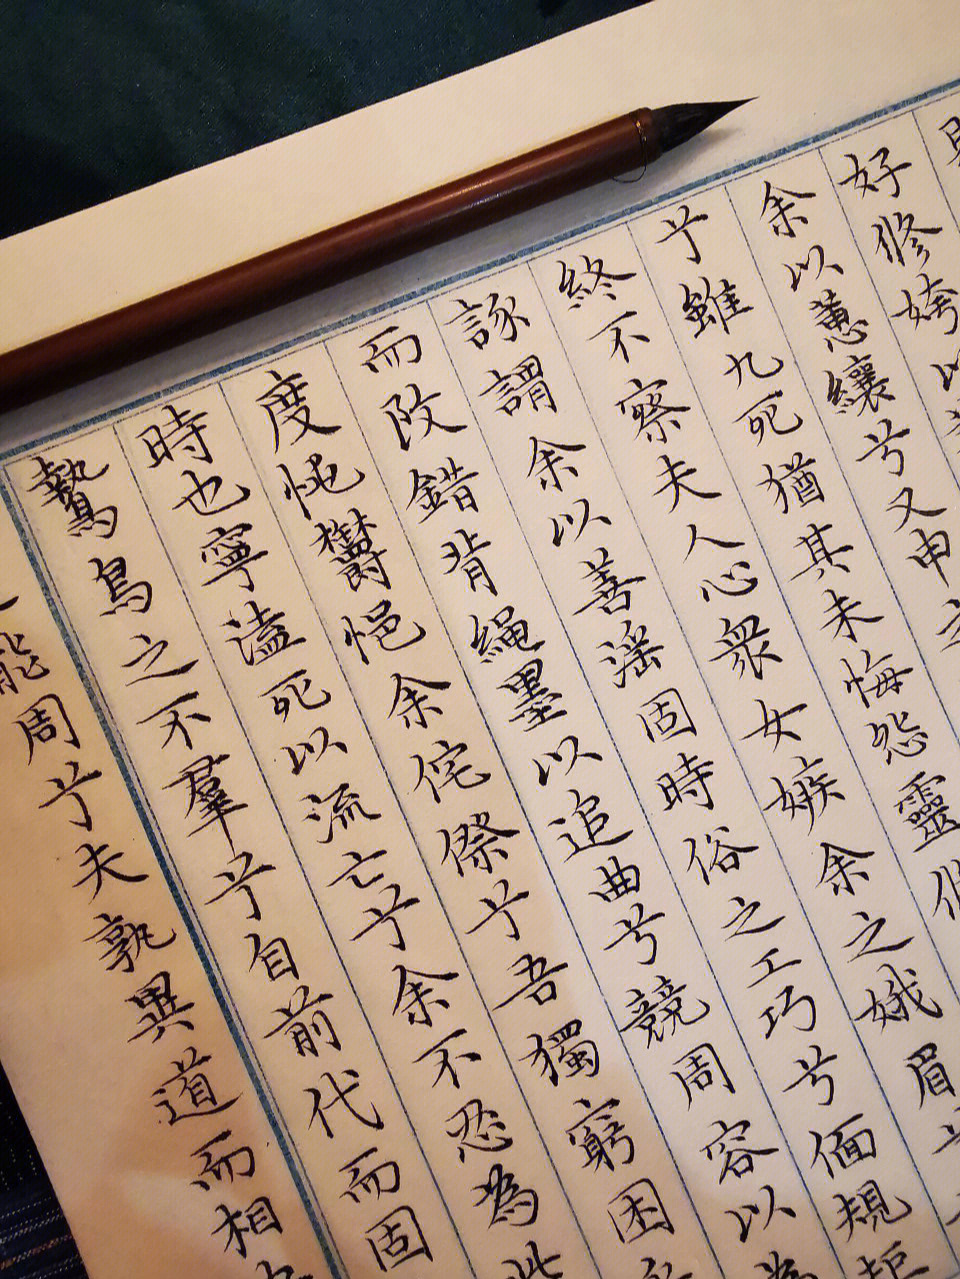 好修姱以
余以蕙纕兮又申
兮雖九死猶其未悔怨靈修
終不察夫人心衆女嫉余之娥眉兮
諑謂余以善淫固時俗之工巧兮偭規矩
而改錯背繩墨以追曲兮競周容以為
度忳欝悒余侘傺兮吾獨窮困
時也寧溘死以流亡兮余不忍為此
鷙鳥之不羣兮自前代而固
能周兮夫孰異道而相